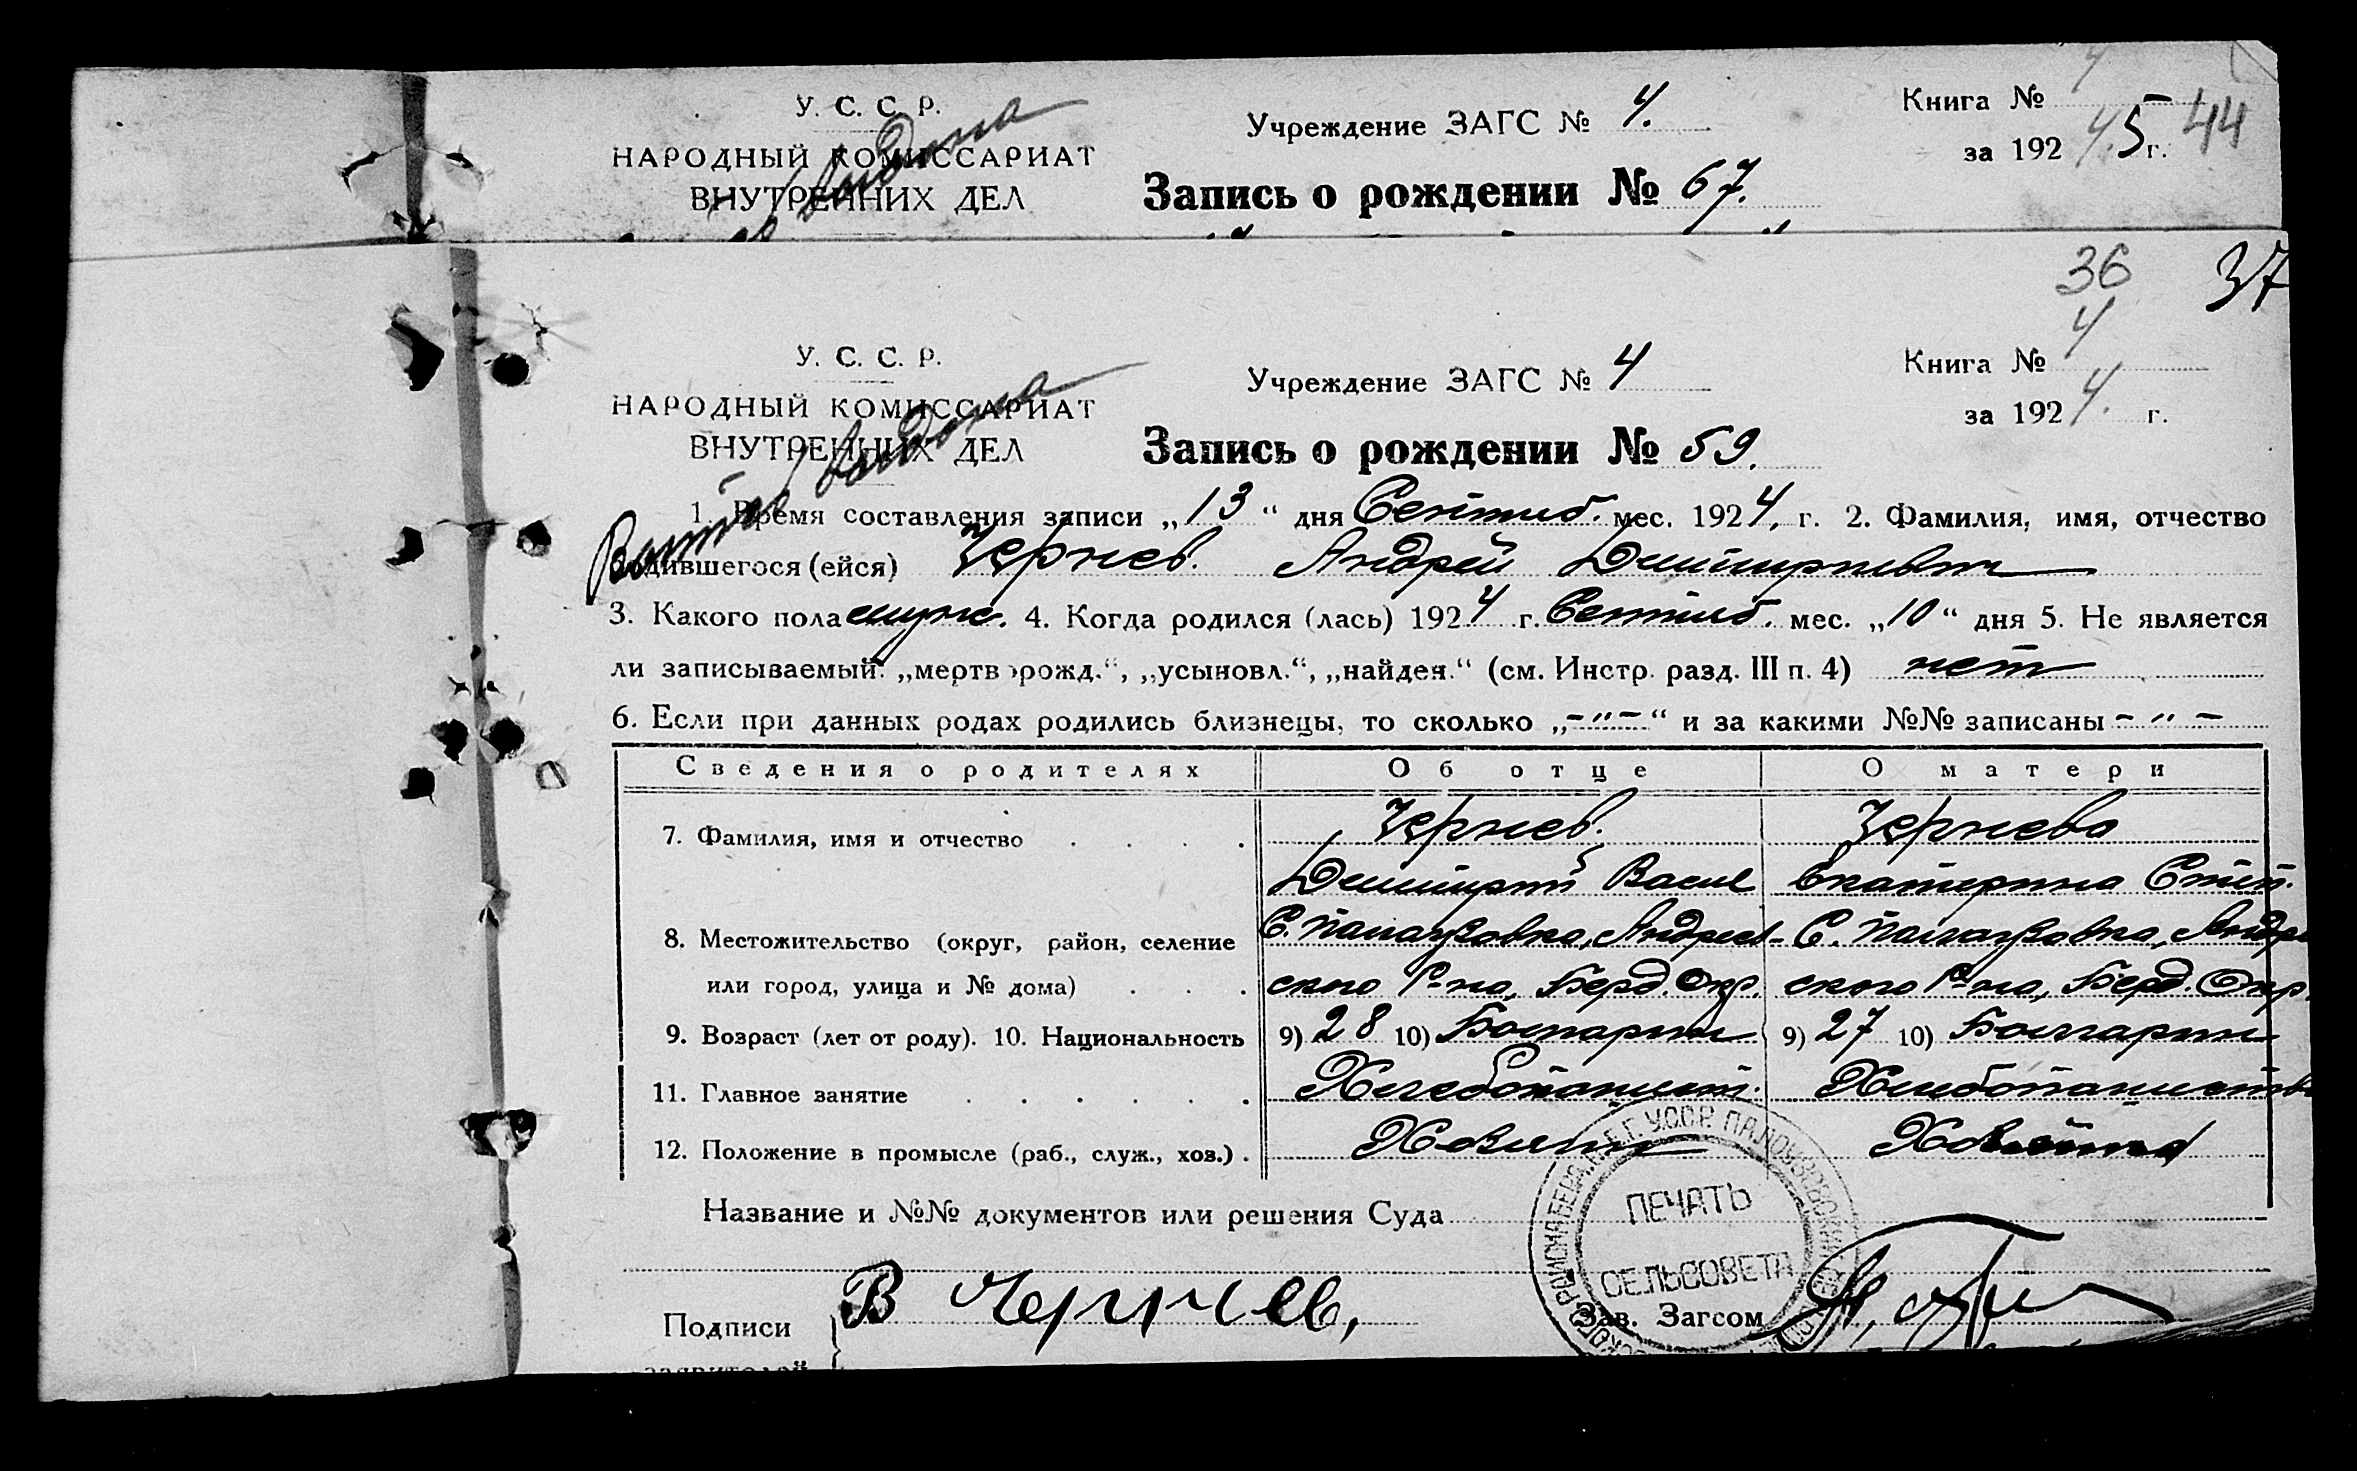 У. С. С. Р.
НАРОДНЫЙ КОМИССАРИАТ
ВНУТРЕННИХ ДЕЛ
Учреждение ЗАГС № 4.
Запись о рождении № 67.
Книга № 4
за 192 4.5 г. 44
36 37
У. С. С. Р.
НАРОДНЫЙ КОМИССАРИАТ
ВНУТРЕННИХ ДЕЛ
Учреждение ЗАГС № 4
Запись о рождении № 59.
Книга № 4
за 192 4. г.
1. Время составления записи „13“ дня Сентяб. мес. 1924, г. 2. Фамилия, имя, отчество
родившегося (ейся) Чернев. Андрей Димитриевич
3. Какого пола мужс. 4. Когда родился (лась) 1924 г. Сентяб. мес. „10“ дня 5. Не является
ли записываемый: „мертворожд.“, „усыновл.“, „найден.“ (см. Инстр. разд. III п. 4) нет
6. Если при данных родах родились близнецы, то сколько „-"-“ и за какими №№ записаны -"-
Сведения о родителях Об отце О матери
7. Фамилия, имя и отчество Чернев. Чернева
Димитрий Васил Екатерина Степ.
8. Местожительство (округ, район, селение С. Палаузовка, Андреев- С. Палаузовка, Андре
или город, улица и № дома) ского Р-на, Берд. Окр. ского Р-на, Берд. Окр.
9. Возраст (лет от роду). 10. Национальность 9) 28 10) Болгарин 9) 27 10) Болгарин
11. Главное занятие Хлебопашест. Хлебопашество
12. Положение в промысле (раб., служ., хоз.) Хозяин Хозяйка
Название и №№ документов или решения Суда
ПЕЧАТЬ
СЕЛЬСОВЕТА
Подписи В Чернев, Зав. Загсом
заявителей